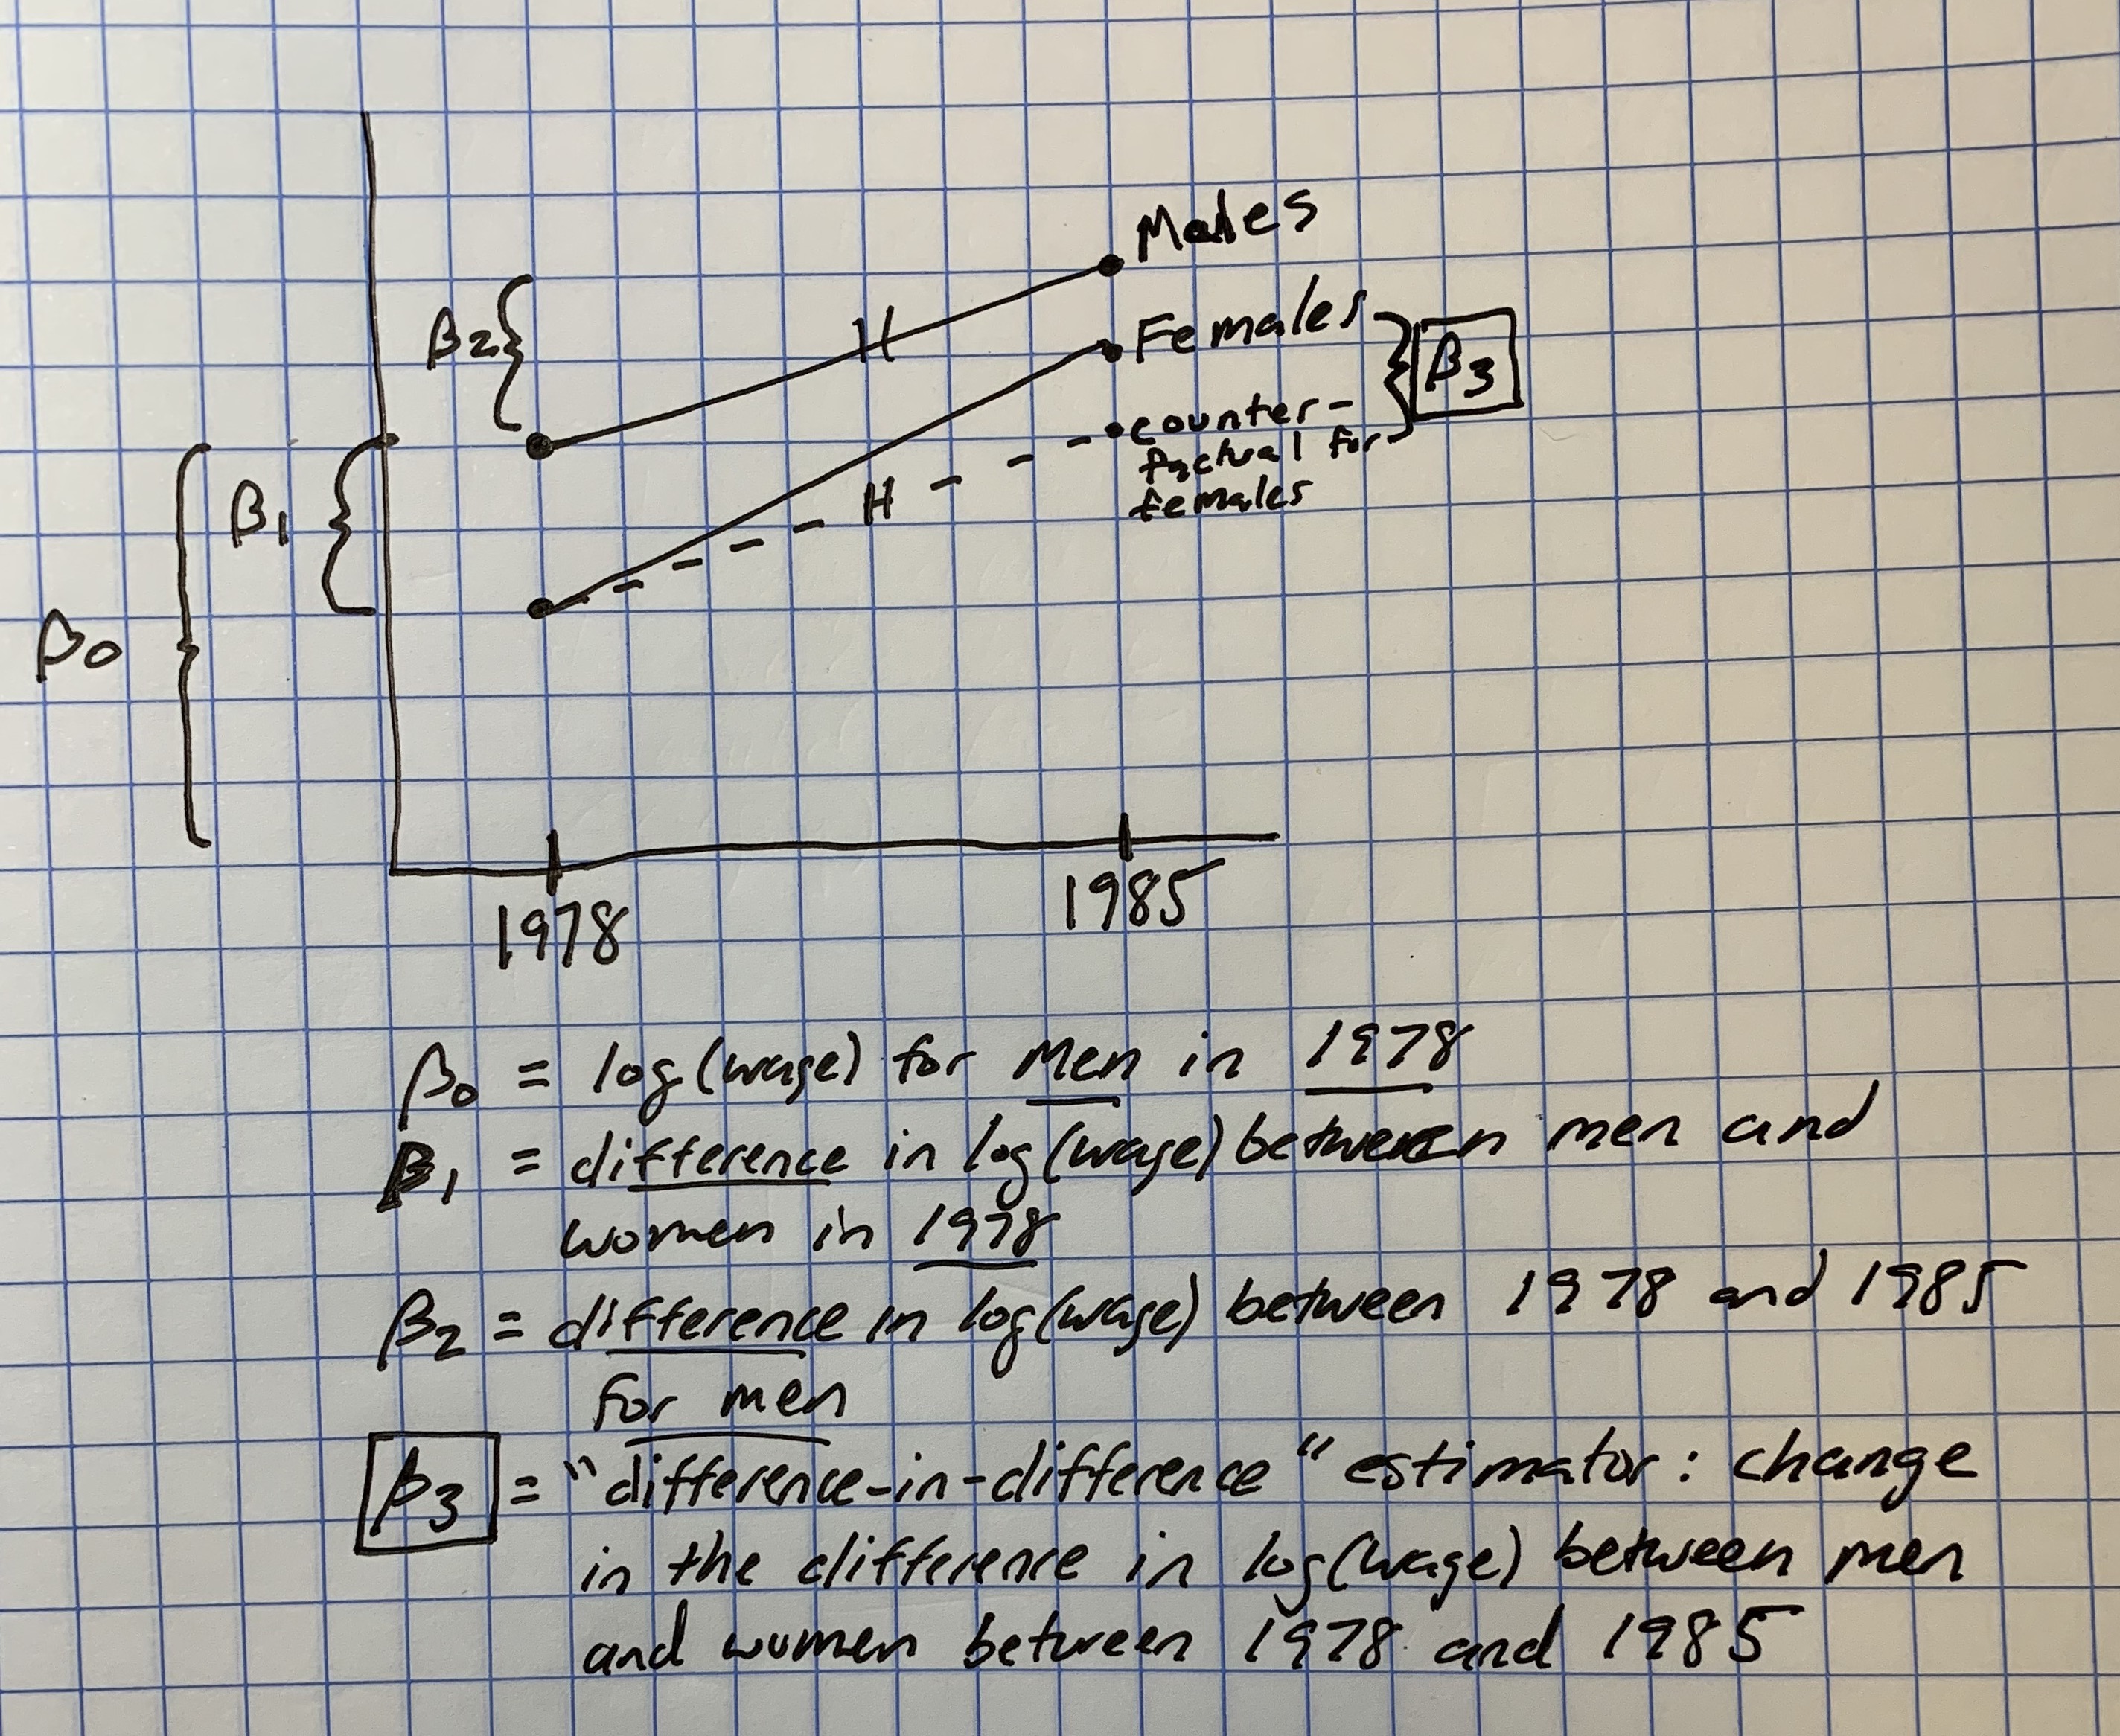 Males
β2
Females
β3
counter-
factual for
females
β1
β0
1978
1985
β0 = log(wage) for Men in 1978
β1 = difference in log(wage) between men and
women in 1978
β2 = difference in log(wage) between 1978 and 1985
for men
β3 = "difference-in-difference" estimator: change
in the difference in log(wage) between men
and women between 1978 and 1985